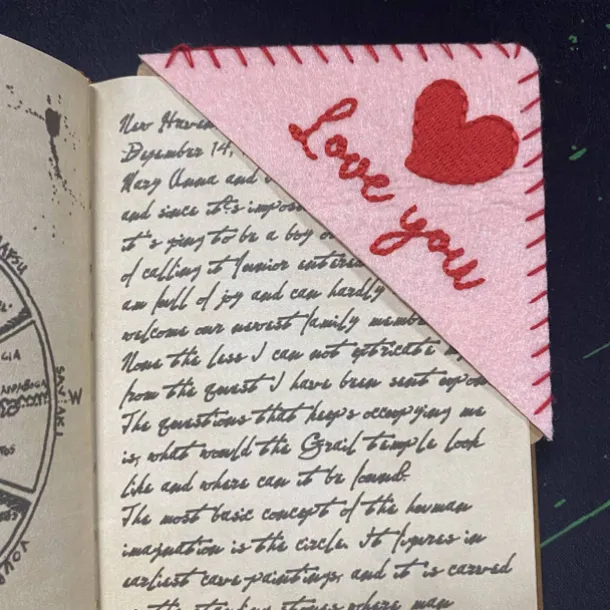 Love you
New Haven
Desember 14,
Mary Anna and
and since it's impos
it's going to be a boy or
of calling it Junior
am full of joy and can hardly
welcome our newest family membe
None the less I can not extricate
from the quest I have been sent upon
The questions that keeps occupying me
is, what would the Grail temple look
like and where can it be found.
The most basic concept of the heuman
imagination is the circle. It figures in
earliest cave paintings, and it is carved
the standing stones where man
W